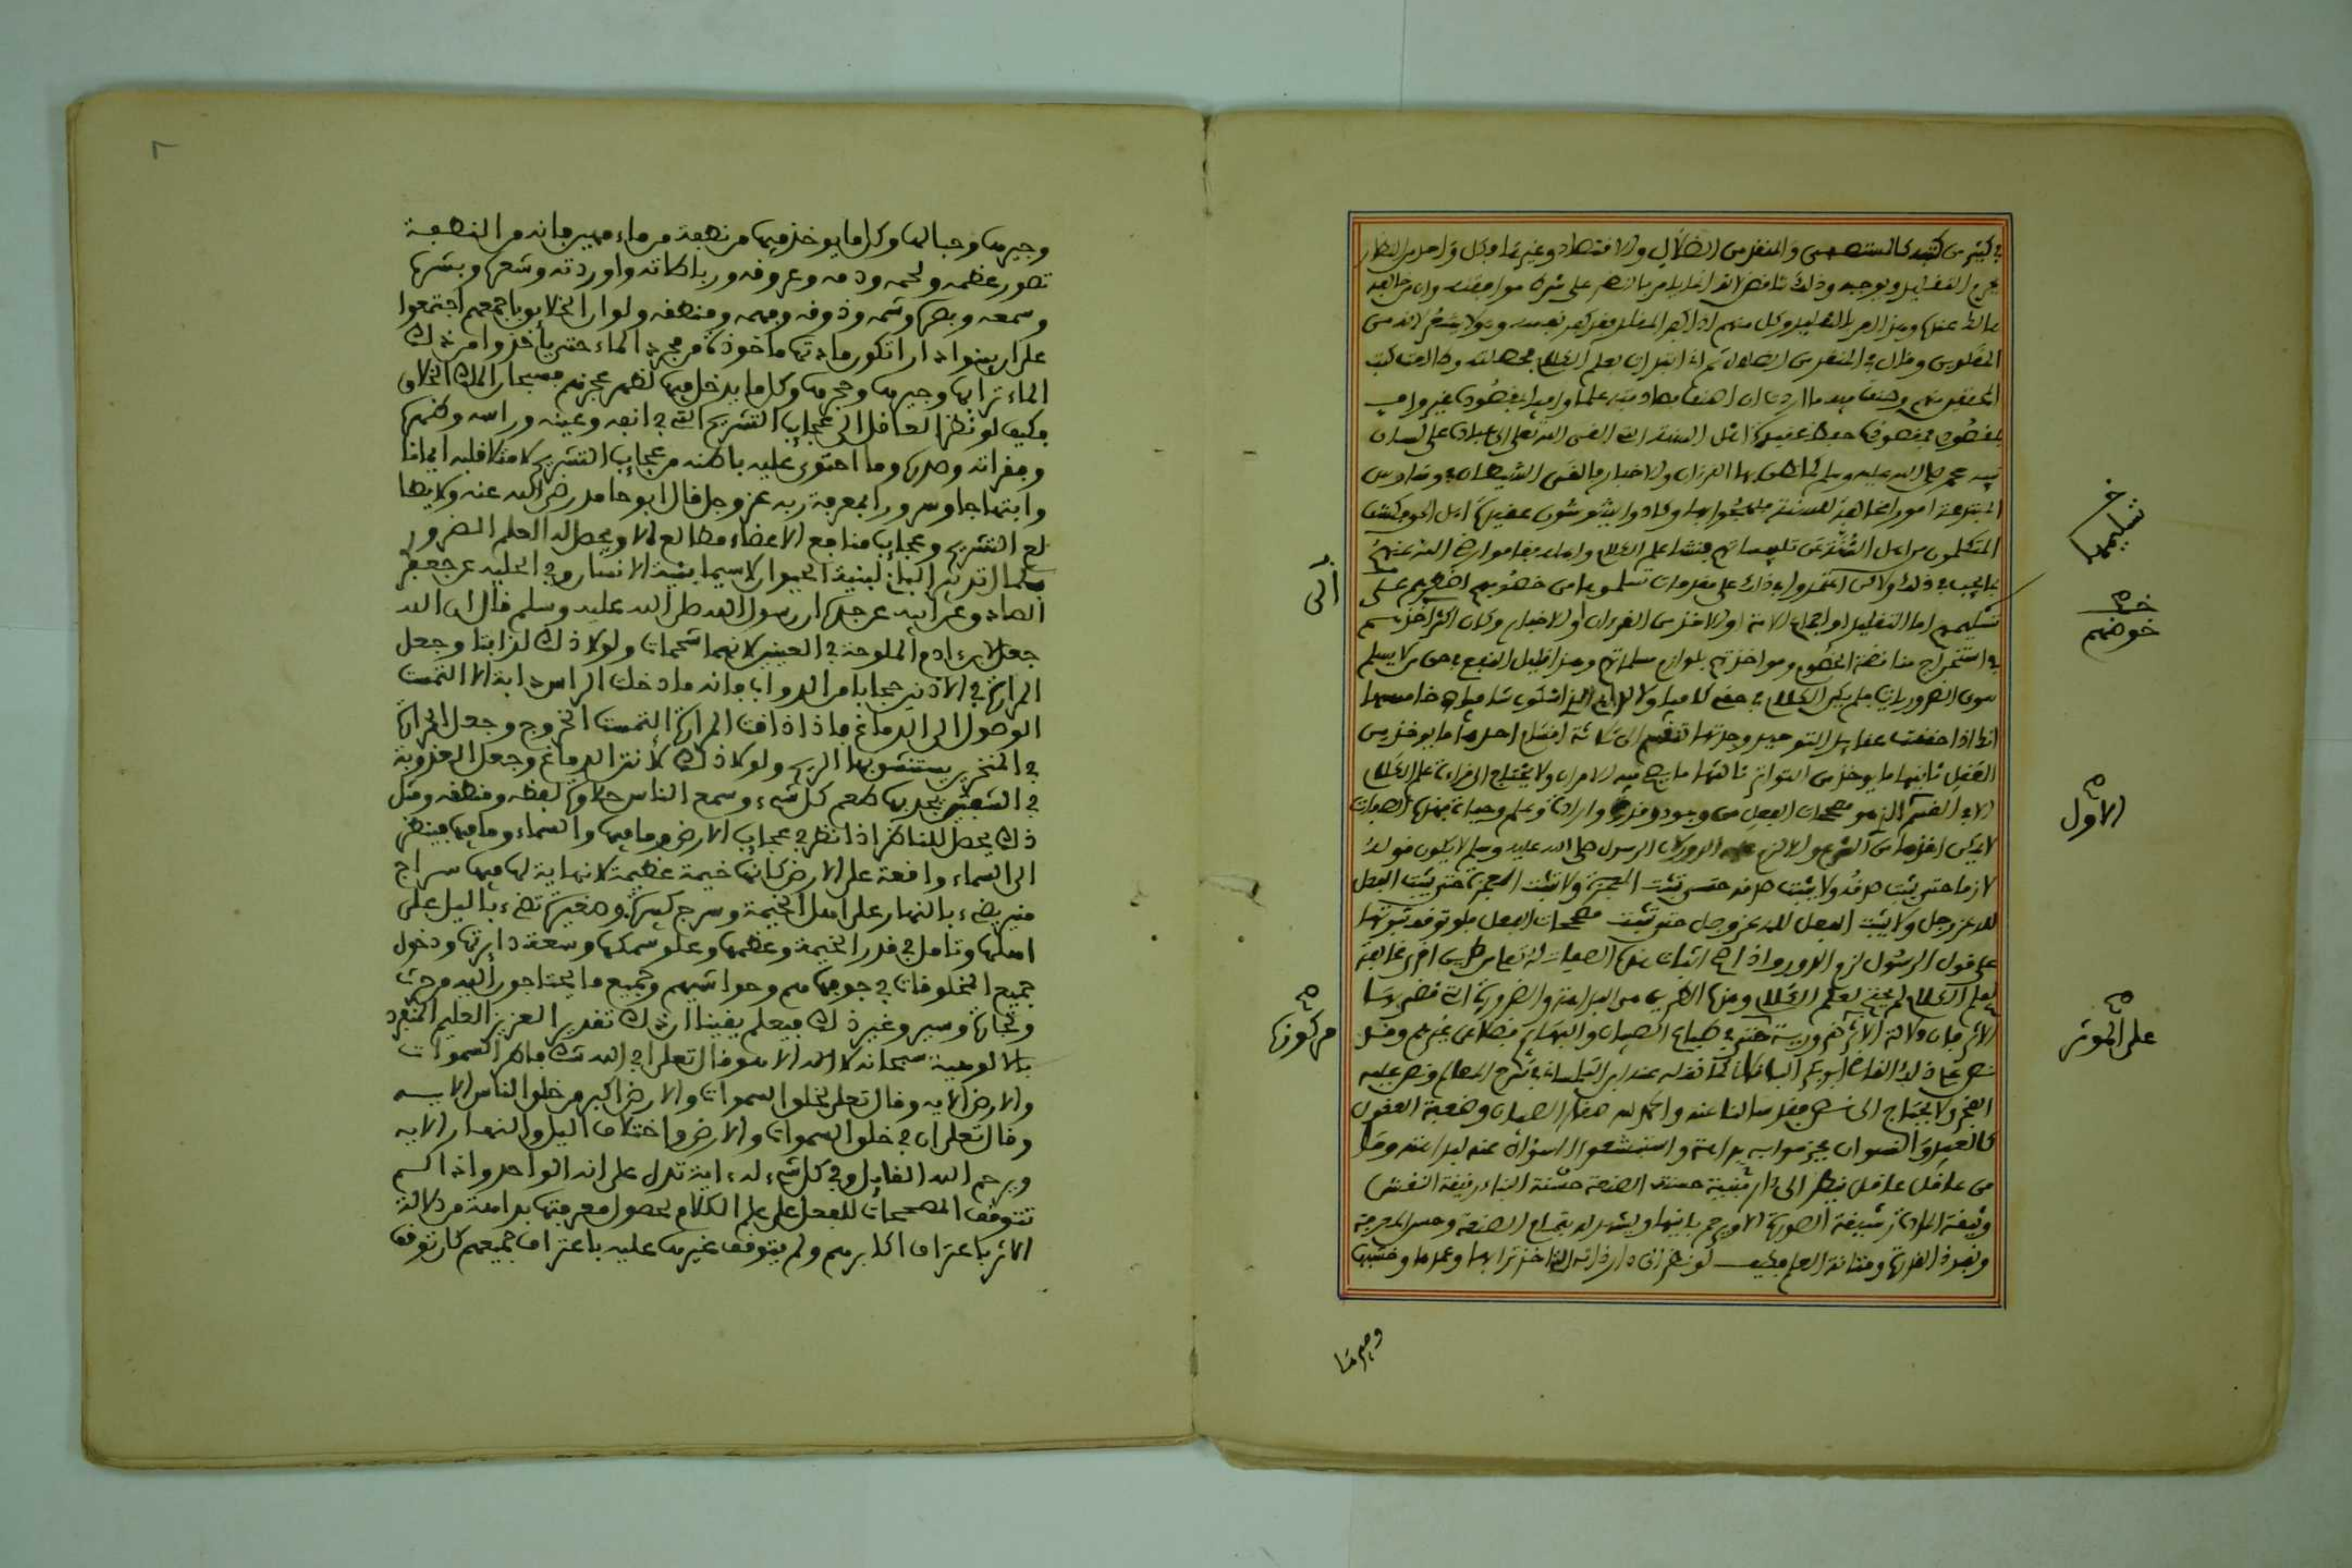 في كثير من كتبه كالمستصفى والمنقذ من الضلال والاقتصاد وغيرها وكل واحد من النظار
يحرم التقليد ويوجبه وذلك تناقض
المنقذ من الضلال ثم اني ابتدات بعلم الكلام فحصلته وطالعت كتب
المحققين منهم وصنفت فيه ما اردت ان اصنف فصادفته علما وافيا بمقصوده غير واف
بمقصودي فمقصوده حفظ عقيدة اهل السنة التي القى الله تعالى الى عباده على لسان
نبيه محمد صلى الله عليه وسلم كما نطق بها القرءان والاخبار فالقى الشيطان في وساوس
المبتدعة امورا مخالفة للسنة فلهجوا بها وكادوا يشوشون عقيدة اهل الحق
المتكلمون من اهل السنة عن تلبيساتهم فنشا علم الكلام واهله فقاموا رضي الله عنهم
بما يجب في ذلك ولاكن اعتمدوا في ذلك على مقدمات تسلموها من خصومهم اضطرهم على
تسليمها اما التقليد او اجماع الامة او الاخذ من القرءان او الاخبار وكان اكثر
في استخراج مناقضة الخصوم ومواخذتهم بلوازم مسلماتهم وهذا قليل النفع في حق من لا يسلم
سوى الضروريات فلم يكن الكلام في حقي كافيا ولا
انك اذا حققت عقايد التوحيد وجدتها تنقسم الى ثلاثة اقسام احدها ما يوخذ من
العقل ثانيها ما يوخذ من التواتر ثالثها ما يصح فيه الامران ولا يحتاج الى قراءة علم الكلام
الا في القسم الذي هو مصححات الفعل من وجود وقدرة وارادة وعلم وحياة فهذه الصفات
لا يمكن اخذها من الشرع والا لزم الدور لان الرسول صلى الله عليه وسلم لا يكون قوله
لازما حتى يثبت صدقه ولا يثبت صدقه حتى تثبت المعجزة ولا تثبت المعجزة حتى يثبت الفعل
لله عز وجل ولا يثبت الفعل لله عز وجل حتى تثبت مصححات الفعل فلو توقف ثبوتها
على قول الرسول لزم الدور واذا صح اثبات هذه الصفات له تعالى من طريق اخرى مخالفة
لعلم الكلام لم يحتج لعلم الكلام وهذه الطريق هي البداهة والضرورة
الاثر فان دلالة الاثر ضرورية حتى في طباع الصبيان والبهايم فضلا عن غيرهم وقد
نص على ذلك القاضي ابو بكر الباقلاني كما نقله عنه ابن التلمساني في شرح المعالم ونص عليه
الفخر ولا يحتاج الى نص فقد سالنا عنه والحمد لله صغار الصبيان وضعفة العقول
كالعبيد والنسوان فجزموا به بداهة واستشعوا السؤال عنه لبداهته وما
من عاقل غافل ينظر الى دار مبنية حسنة الصنعة حسنة البناء رقيقة النقش
وثيقة المادة رشيقة الصورة الا ويجزم ببانيها ويشهد له بتمام الصنعة وحسن المعرفة
ونفوذ القدرة ومتانة العلم فكيف لو نظر الى دار ذاته التي اخذ ترابها وعمدها وخشبها
وجيرها
تسليمها
خ
خوضهم
الاول
على الموثر
مركوزة
وجيرها وحبالها وكل ما يوخذ فيها من نطفة من ماء مهين فانه من النطفة
تصور عظمه ولحمه ودمه وعروقه ورباطاته واوردته وشعره وبشرها
وسمعه وبصره وشمه وذوقه وفهمه ومنطقه ولو ان الخلايق باجمعهم اجتمعوا
على ان يبنوا دارا تكون مادتها ماخوذة من مجرد الماء حتى ياخذوا من ذلك
الماء ترابها وجيرها وحجرها وكل ما يدخل فيها لظهر عجزهم فسبحان الملك الخلاق
فكيف لو نظر العاقل الى عجايب التشريح التي في انفه وعينه وراسه وظهره
وفقراته وصدره وما احتوى عليه باطنه من عجايب التشريح لامتلا قلبه ايمانا
وابتهاجا وسرورا بمعرفة ربه عز وجل قال ابو حامد رضي الله عنه ولا يطالع
التشريح وعجايب منافع الاعضاء مطالع الا ويحصل له العلم الضروري
بكمال تدبير الباني لبنية الحيوان لاسيما بنية الانسان وفي الحلية عن جعفر
الصادق عن ابيه عن جده ان رسول الله صلى الله عليه وسلم قال ان الله
جعل لابن ءادم الملوحة في العينين لانهما شحمتان ولولا ذلك لذابتا وجعل
المرارة في الاذنين حجابا من الدواب فانه ما دخلت الراس دابة الا التمست
الوصول الى الدماغ فاذا ذاقت المرارة التمست الخروج وجعل الحرارة
في المنخرين يستنشق بهما الريح ولولا ذلك لانتن الدماغ وجعل العذوبة
في الشفتين يجد بها طعم كل شيء وسمع الناس حلاوة لفظه ومنطقه ومثل
ذلك يحصل للناظر اذا نظر في عجايب الارض وما فيها والسماء وما فيها فينظر
الى السماء واقعة على الارض كانها خيمة عظيمة لا نهاية لها فيها سراج
منير يضيء بالنهار على اهل الخيمة وسرج كبيرة وصغيرة تضيء بالليل على
اهلها وتامل في قدر الخيمة وعظمها وعلو سمكها وسعة دايرتها ودخول
جميع المخلوقات في جوفها هم وحواشيهم وجميع ما يحتاجون اليه من حرث
وتجارة وسير وغير ذلك فيعلم يقينا ان ذلك تقدير العزيز العليم المنفرد
بالالوهية سبحانه لا اله الا هو قال تعلى افي الله شك فاطر السموات
والارض الايه وقال تعلى لخلق السموات والارض اكبر من خلق الناس الايه
وقال تعلى ان في خلق السموات والارض واختلاف اليل والنهار الايه
ويرحم الله القايل وفي كل شيء له ءاية تدل على انه الواحد واذا لم
تتوقف المصححات للفعل على علم الكلام لحصول معرفتها بداهة من دلالة
الاثر باعتراف اكابرهم ولم يتوقف غيرها عليه باعتراف جميعهم كان توقف